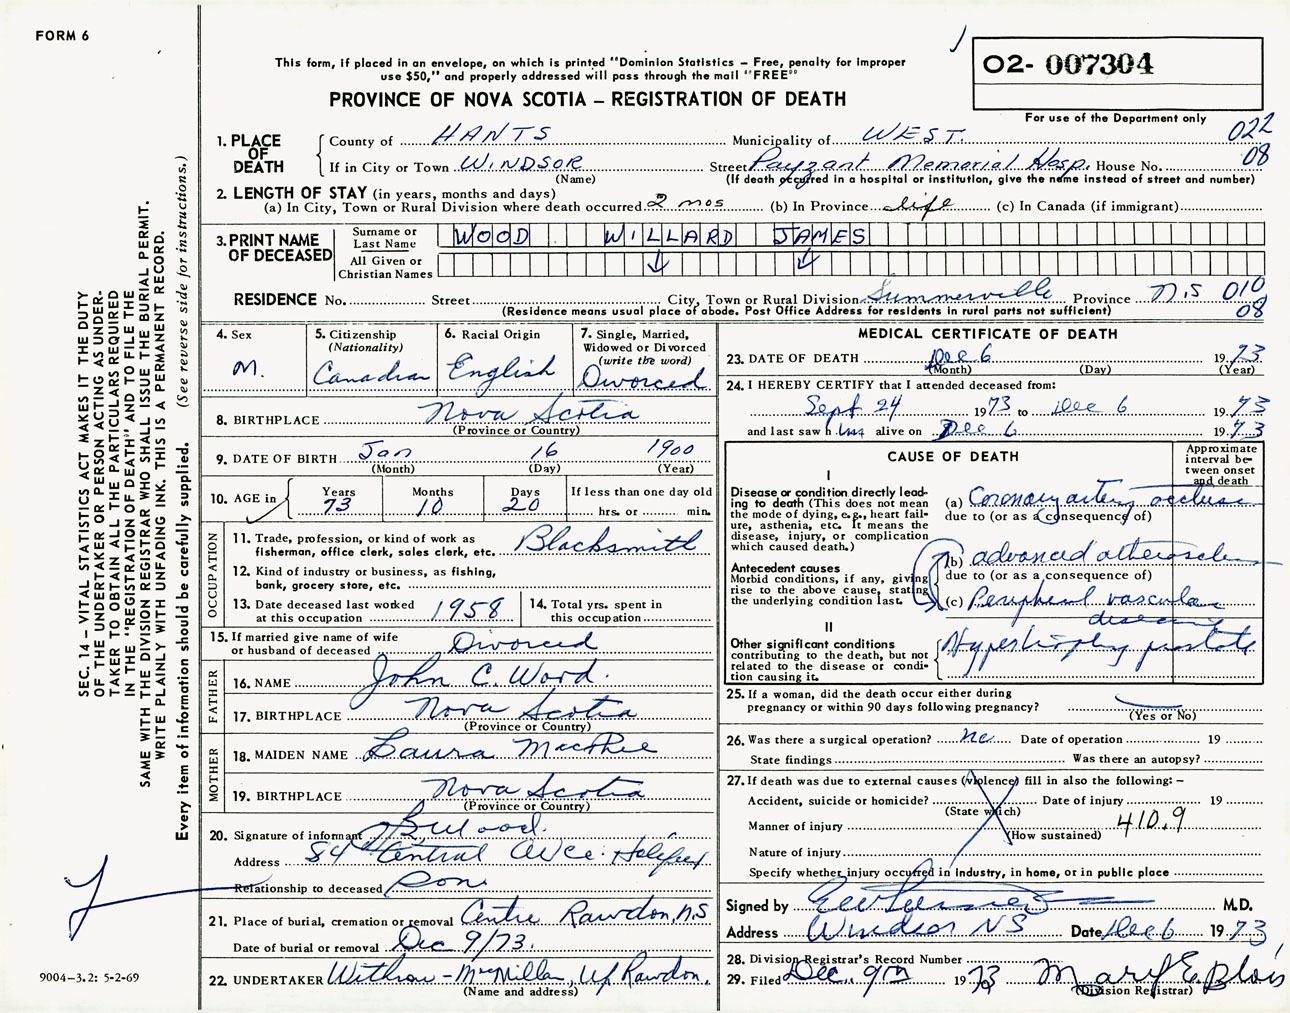 FORM 6
This form, if placed in an envelope, on which is printed "Dominion Statistics – Free, penalty for improper
use $50," and properly addressed will pass through the mail "FREE"
PROVINCE OF NOVA SCOTIA – REGISTRATION OF DEATH
02- 007304
For use of the Department only
1. PLACE OF DEATH
County of HANTS Municipality of WEST. 022
If in City or Town WINDSOR Street Payzant Memorial Hosp. House No. 08
(Name) (If death occurred in a hospital or institution, give the name instead of street and number)
2. LENGTH OF STAY (in years, months and days)
(a) In City, Town or Rural Division where death occurred 2 mos (b) In Province life (c) In Canada (if immigrant)
3. PRINT NAME OF DECEASED
Surname or Last Name WOOD WILLARD JAMES
All Given or Christian Names
RESIDENCE No. Street City, Town or Rural Division Summerville Province N.S 010
(Residence means usual place of abode. Post Office Address for residents in rural parts not sufficient) 08
4. Sex
M.
5. Citizenship
(Nationality)
Canadian
6. Racial Origin
English
7. Single, Married,
Widowed or Divorced
(write the word)
Divorced
8. BIRTHPLACE Nova Scotia
(Province or Country)
9. DATE OF BIRTH Jan 16 1900
(Month) (Day) (Year)
10. AGE in
Years Months Days If less than one day old
73 10 20 hrs. or min.
OCCUPATION
11. Trade, profession, or kind of work as
fisherman, office clerk, sales clerk, etc. Blacksmith
12. Kind of industry or business, as fishing,
bank, grocery store, etc.
13. Date deceased last worked
at this occupation 1958
14. Total yrs. spent in
this occupation
15. If married give name of wife
or husband of deceased Divorced
FATHER
16. NAME John C. Wood.
17. BIRTHPLACE Nova Scotia
(Province or Country)
MOTHER
18. MAIDEN NAME Laura MacPhee
19. BIRTHPLACE Nova Scotia
(Province or Country)
20. Signature of informant
Address 84 Central Ave. Halifax
Relationship to deceased Son
21. Place of burial, cremation or removal Centre Rawdon, N.S
Date of burial or removal Dec 9/73.
22. UNDERTAKER Withrow - McMillan, Up. Rawdon.
(Name and address)
MEDICAL CERTIFICATE OF DEATH
23. DATE OF DEATH Dec 6 1973
(Month) (Day) (Year)
24. I HEREBY CERTIFY that I attended deceased from:
Sept 24 1973 to Dec 6 1973
and last saw him alive on Dec 6 1973
CAUSE OF DEATH
Approximate
interval be-
tween onset
and death
I
Disease or condition directly lead-
ing to death (This does not mean
the mode of dying, e.g., heart fail-
ure, asthenia, etc. It means the
disease, injury, or complication
which caused death.)
(a) Coronary artery
due to (or as a consequence of)
Antecedent causes
Morbid conditions, if any, giving
rise to the above cause, stating
the underlying condition last.
(b) advanced
due to (or as a consequence of)
(c) Peripheral vascular
disease
II
Other significant conditions
contributing to the death, but not
related to the disease or condi-
tion causing it.
Hypertrophy prostate
25. If a woman, did the death occur either during
pregnancy or within 90 days following pregnancy?
(Yes or No)
26. Was there a surgical operation? no Date of operation 19
State findings Was there an autopsy?
27. If death was due to external causes (violence) fill in also the following: –
Accident, suicide or homicide? Date of injury 19
(State which)
Manner of injury 410.9
(How sustained)
Nature of injury
Specify whether injury occurred in industry, in home, or in public place
Signed by M.D.
Address Windsor NS Date Dec 6 1973
28. Division Registrar's Record Number
29. Filed Dec. 9th 1973 Mary E. Blois
(Division Registrar)
SEC. 14 – VITAL STATISTICS ACT MAKES IT THE DUTY
OF THE UNDERTAKER OR PERSON ACTING AS UNDER-
TAKER TO OBTAIN ALL THE PARTICULARS REQUIRED
IN THE "REGISTRATION OF DEATH" AND TO FILE THE
SAME WITH THE DIVISION REGISTRAR WHO SHALL ISSUE THE BURIAL PERMIT.
WRITE PLAINLY WITH UNFADING INK. THIS IS A PERMANENT RECORD.
Every item of information should be carefully supplied. (See reverse side for instructions.)
9004-3.2: 5-2-69